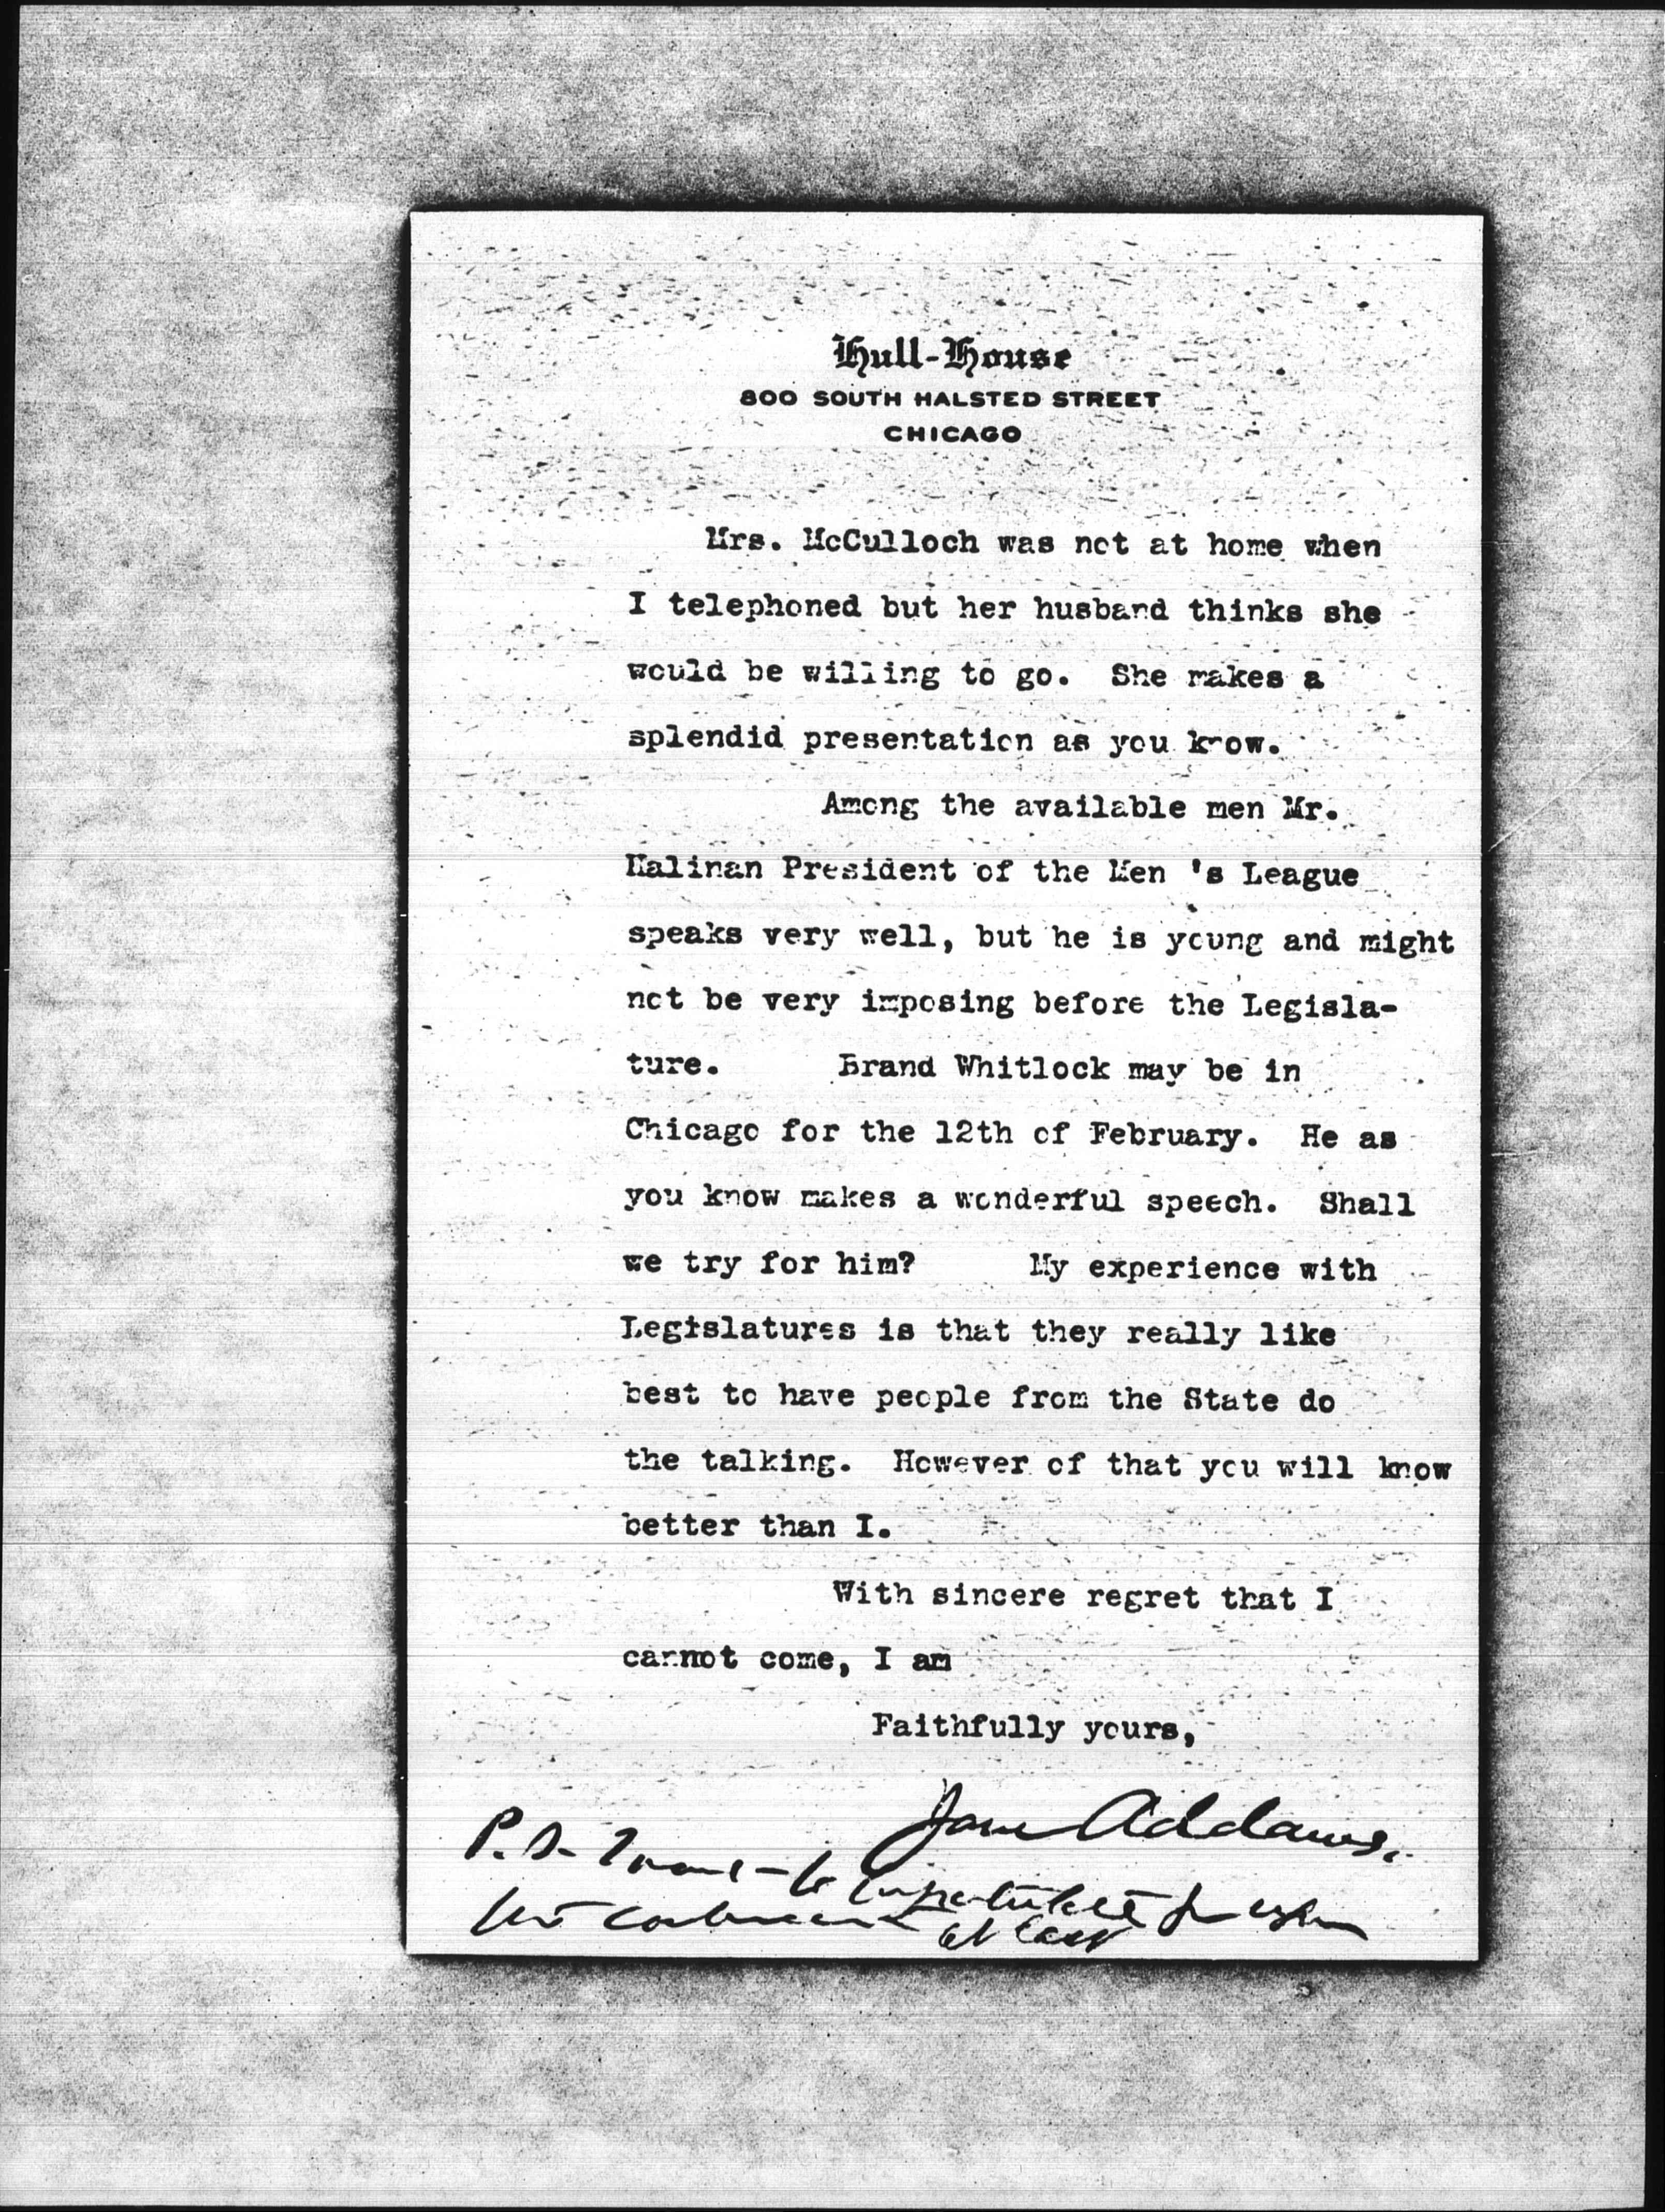 Hull-House
800 SOUTH HALSTED STREET
CHICAGO
Mrs. McCulloch was not at home when
I telephoned but her husband thinks she
would be willing to go. She makes a
splendid presentation as you know.
Among the available men Mr.
Halinan President of the Men 's League
speaks very well, but he is young and might
not be very imposing before the Legisla-
ture. Brand Whitlock may be in
Chicago for the 12th of February. He as
you know makes a wonderful speech. Shall
we try for him? My experience with
Legislatures is that they really like
best to have people from the State do
the talking. However of that you will know
better than I.
With sincere regret that I
cannot come, I am
Faithfully yours,
Jane Addams.
P.S. I
at last